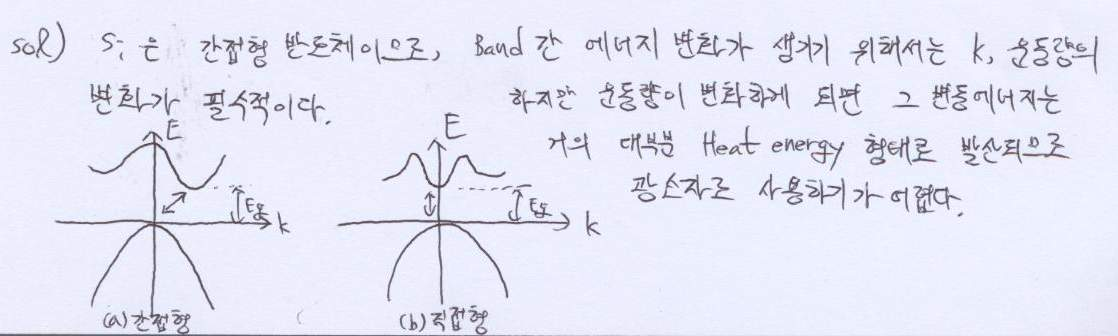 sol) Si은 간접형 반도체이므로, Band 간 에너지 변화가 생기기 위해서는 k, 운동량의
변화가 필수적이다. 하지만 운동량이 변화하게 되면 그 변동에너지는
거의 대부분 Heat energy 형태로 발산되므로
광소자로 사용하기가 어렵다.
E
Eg
k
(a) 간접형
E
Eg
k
(b) 직접형